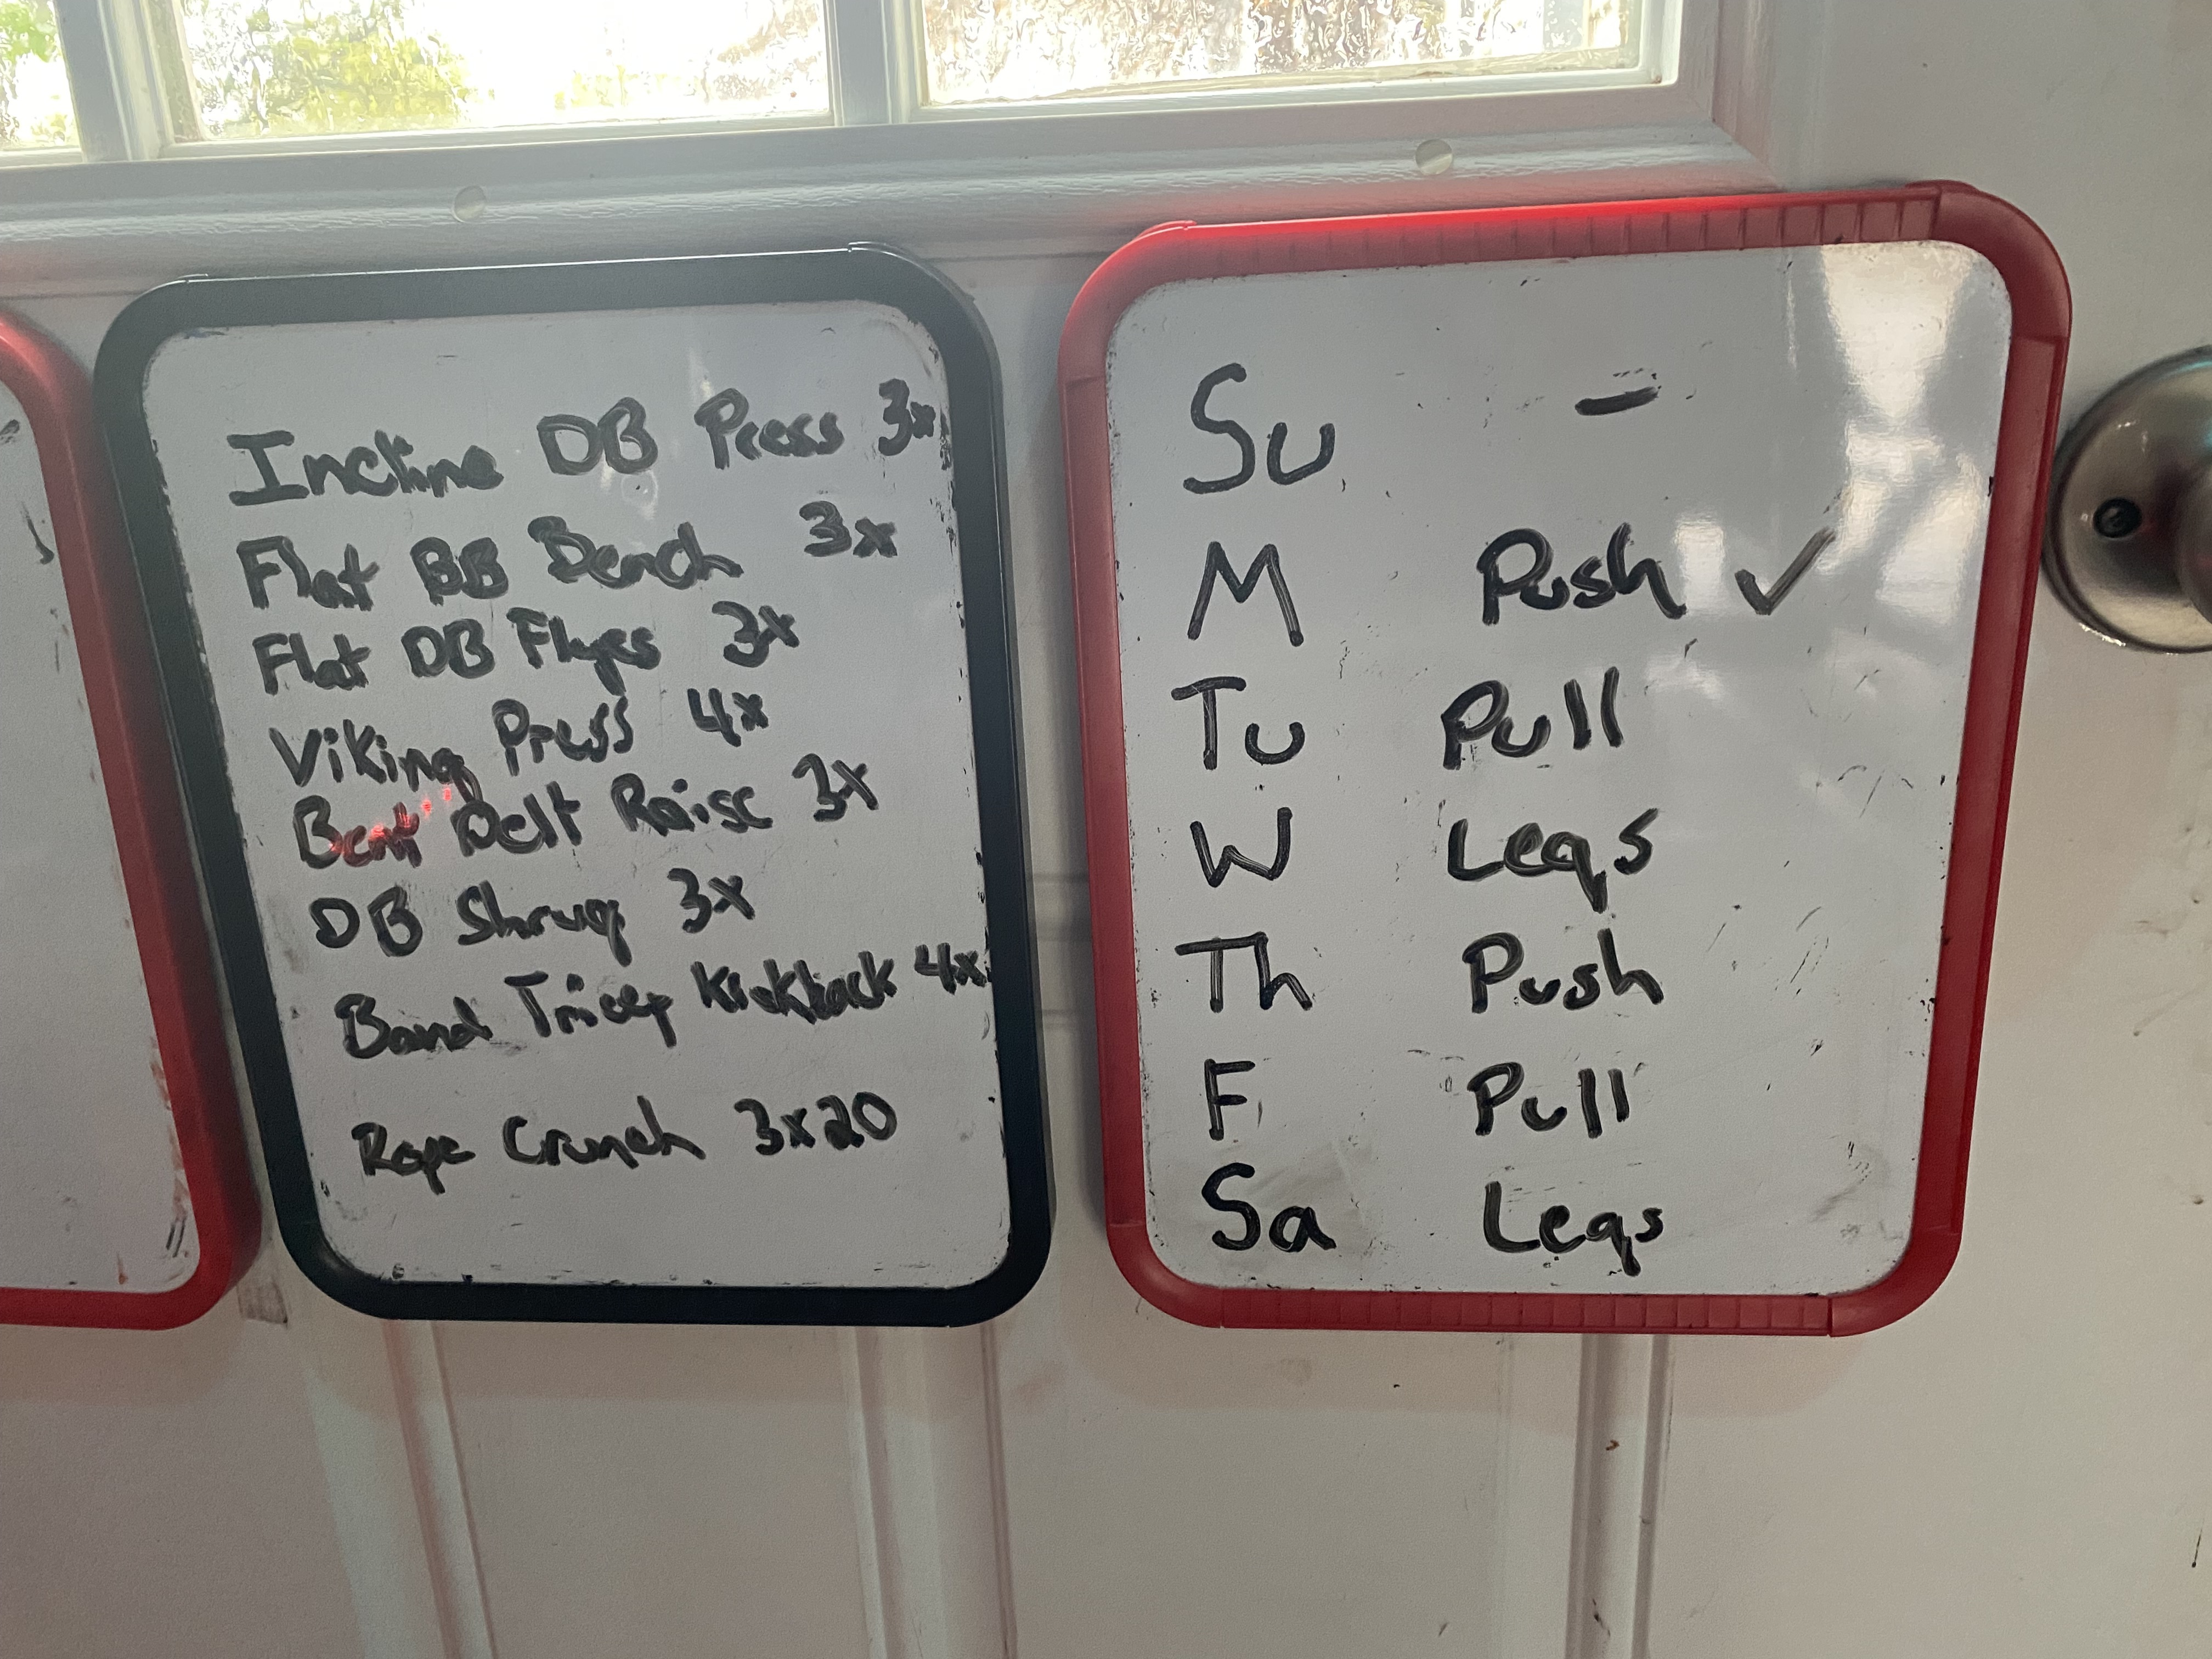 Incline DB Press 3x
Flat BB Bench 3x
Flat DB Flyes 3x
Viking Press 4x
Bent Delt Raise 3x
DB Shrug 3x
Band Tricep Kickback 4x
Rope Crunch 3x20
Su -
M Push ✓
Tu Pull
W Legs
Th Push
F Pull
Sa Legs